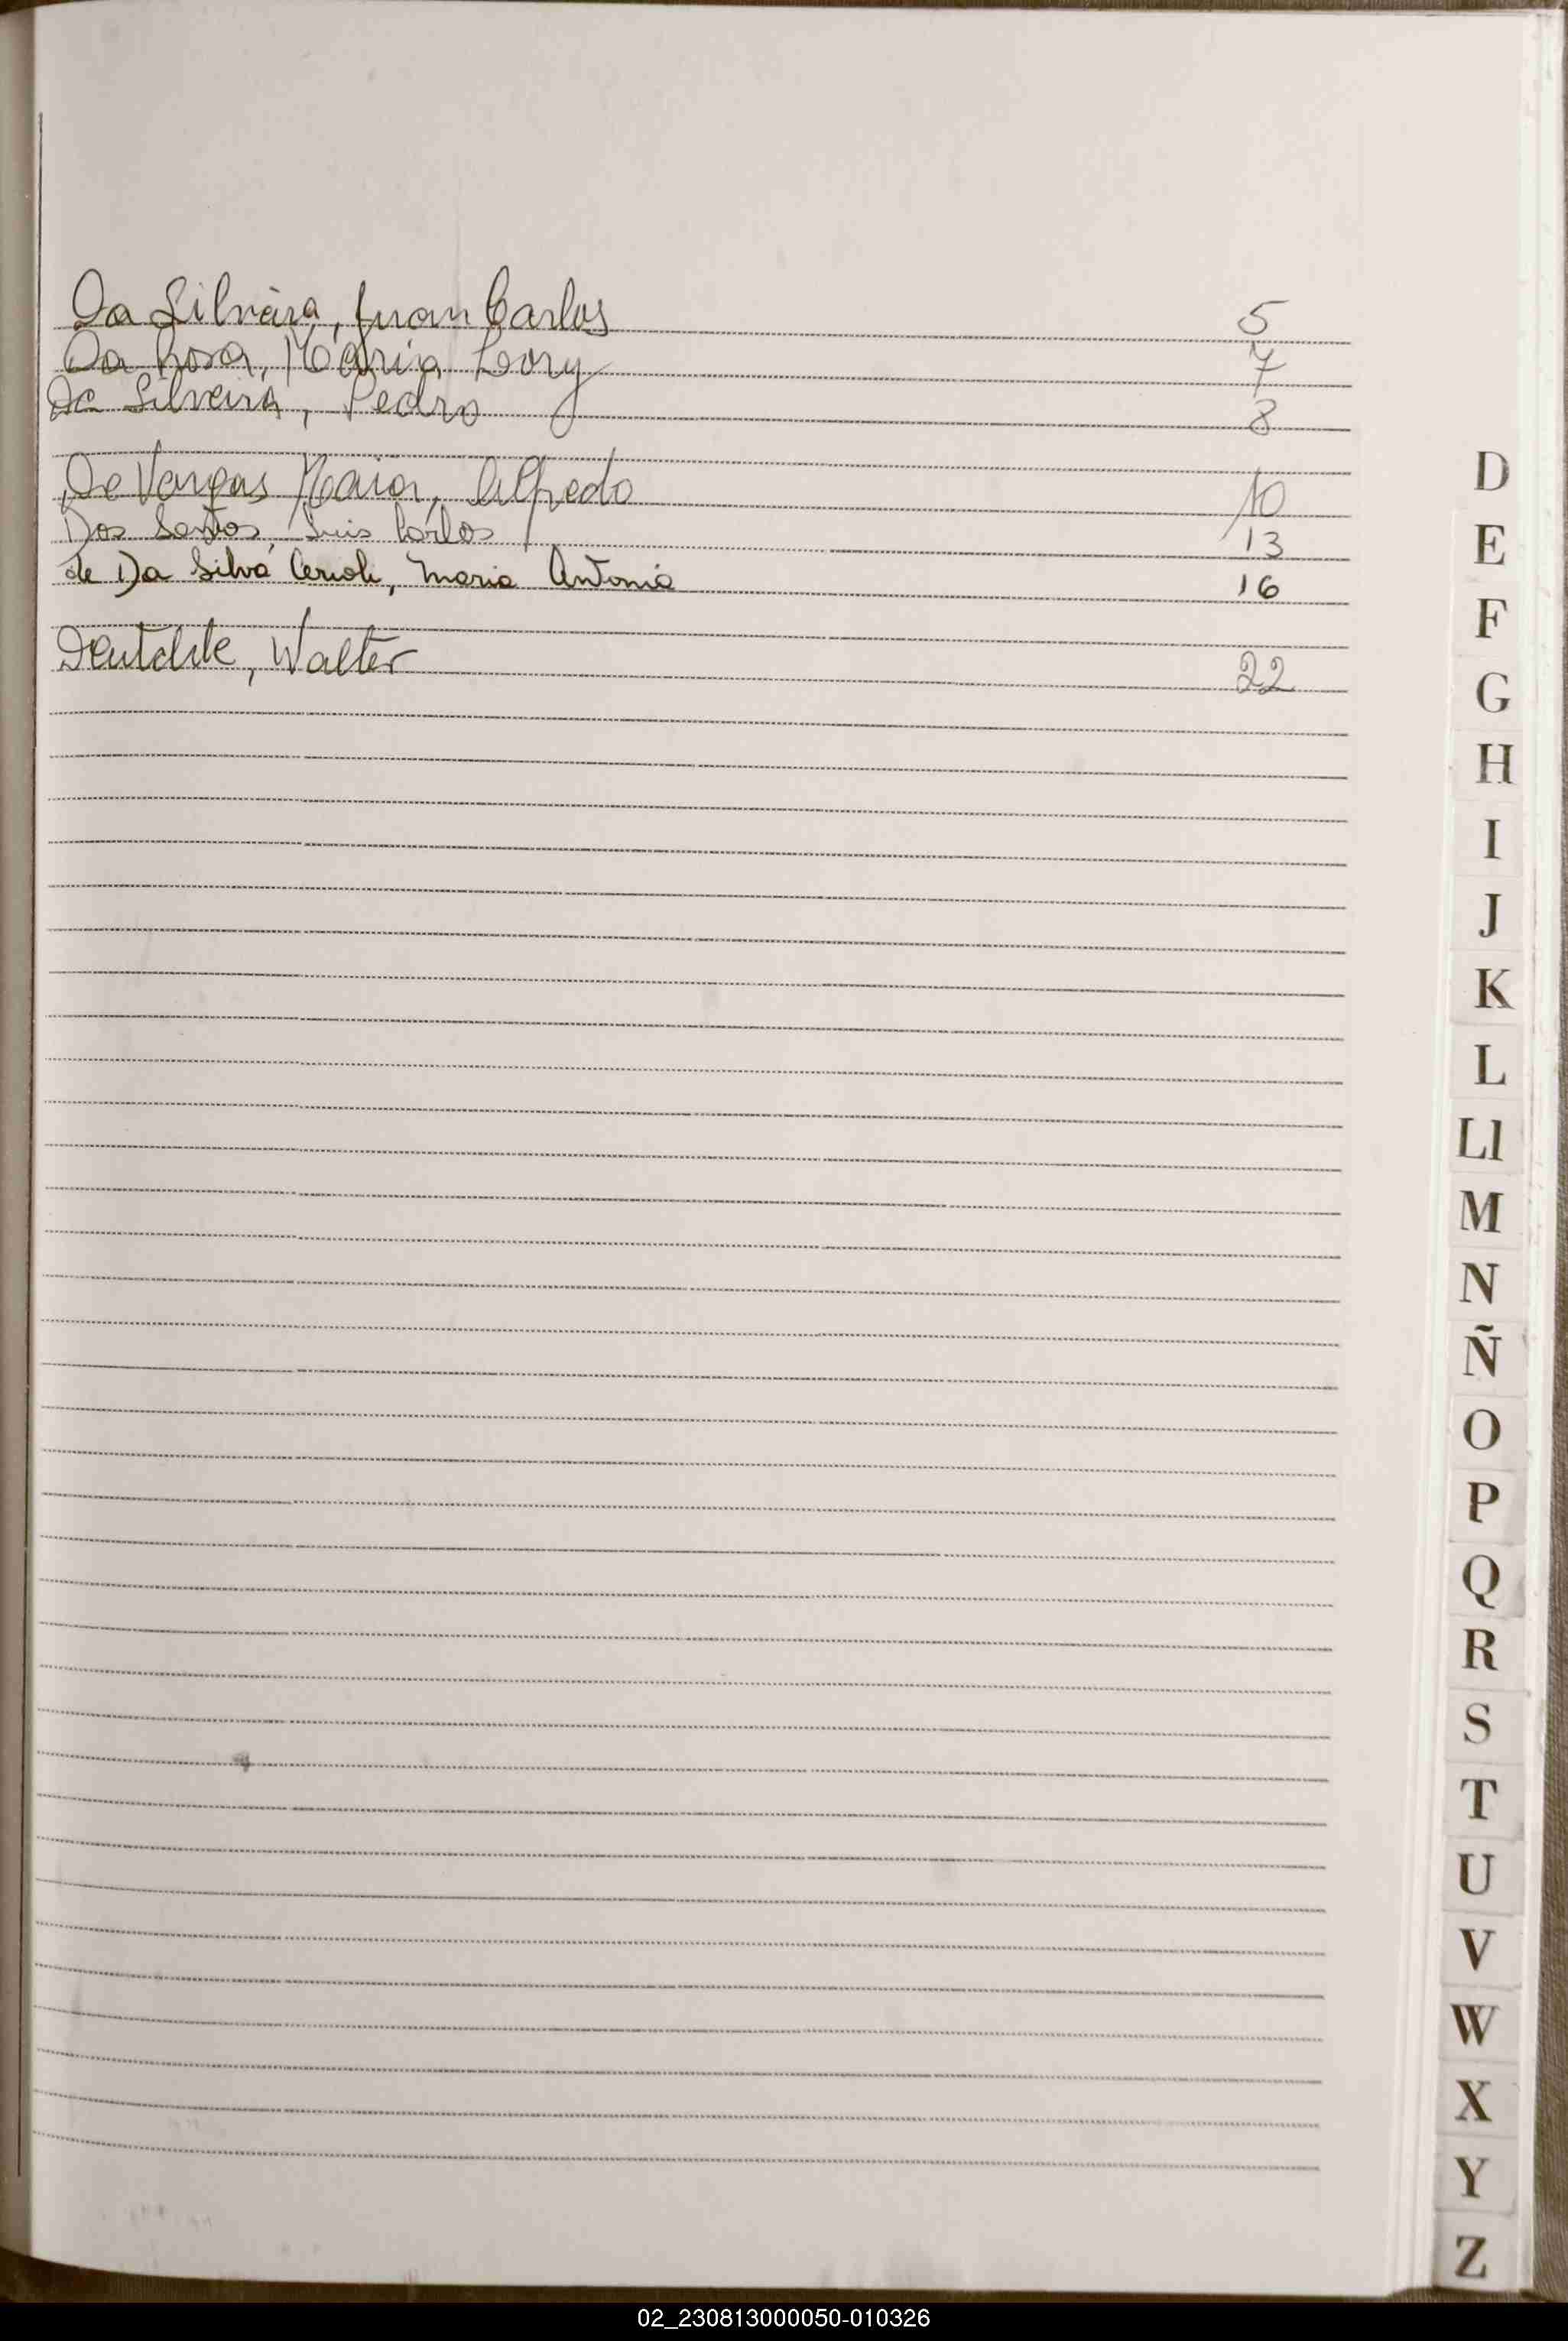 Da Silveira, Juan Carlos 5
Da Rosa, Maria Leory 7
Da Silveira, Pedro 8
De Vargas Maia, Alfredo 10
Dos Santos, Luis Carlos 13
de Da Silva Cerioli, Maria Antonia 16
Walter 22
D
E
F
G
H
I
J
K
L
Ll
M
N
Ñ
O
P
Q
R
S
T
U
V
W
X
Y
Z
02_230813000050-010326